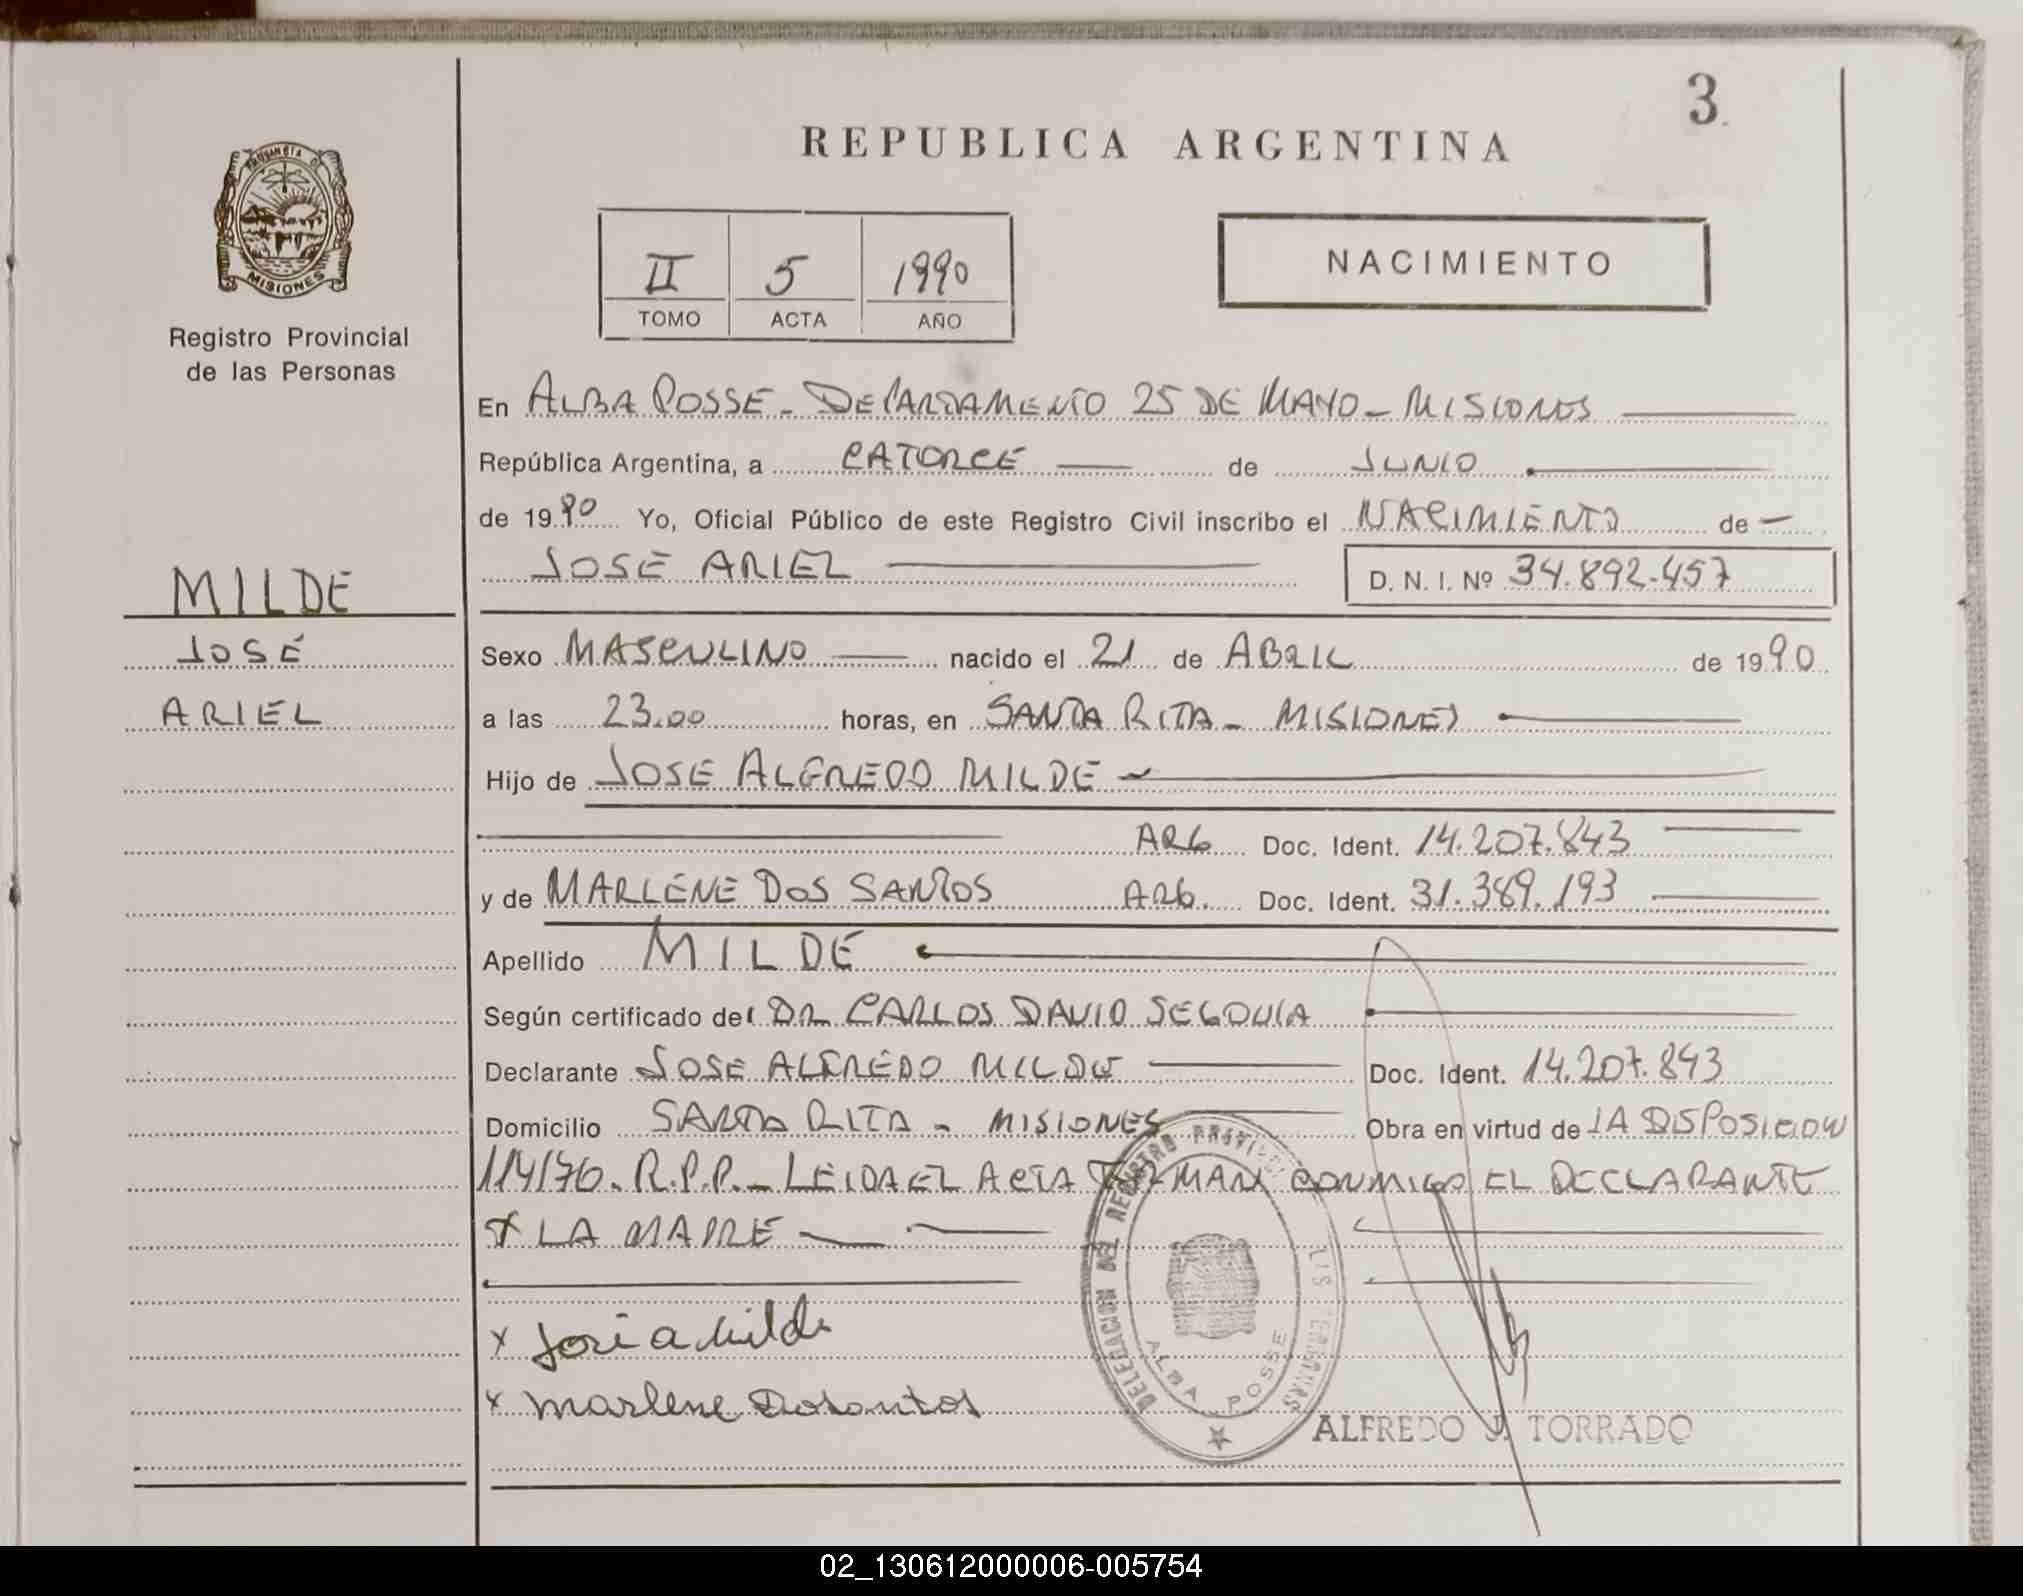 3
REPUBLICA ARGENTINA
PROVINCIA D
MISIONES
Registro Provincial
de las Personas
II 5 1990
TOMO ACTA AÑO
NACIMIENTO
En ALBA POSSE - DEPARTAMENTO 25 DE MAYO - MISIONES
República Argentina, a CATORCE de JUNIO
de 1990 Yo, Oficial Público de este Registro Civil inscribo el NACIMIENTO de
JOSE ARIEL D. N. I. Nº 34.892.457
MILDE
JOSÉ
ARIEL
Sexo MASCULINO nacido el 21 de ABRIL de 1990
a las 23.00 horas, en SANTA RITA - MISIONES
Hijo de JOSE ALFREDO MILDE
ARG Doc. Ident. 14.207.843
y de MARLENE DOS SANTOS ARG. Doc. Ident. 31.389.193
Apellido MILDE
Según certificado del DR CARLOS DAVID SEGOVIA
Declarante JOSE ALFREDO MILDE Doc. Ident. 14.207.843
Domicilio SANTA RITA - MISIONES Obra en virtud de LA DISPOSICION
114/76. R.P.P. - LEIDA EL ACTA FIRMAN CONMIGO EL DECLARANTE
Y LA MADRE
x José A Milde
x Marlene Dosantos
DELEGACION DEL REGISTRO PROVINCIAL DE LAS PERSONAS
ALBA POSSE
ALFREDO J. TORRADO
02_130612000006-005754